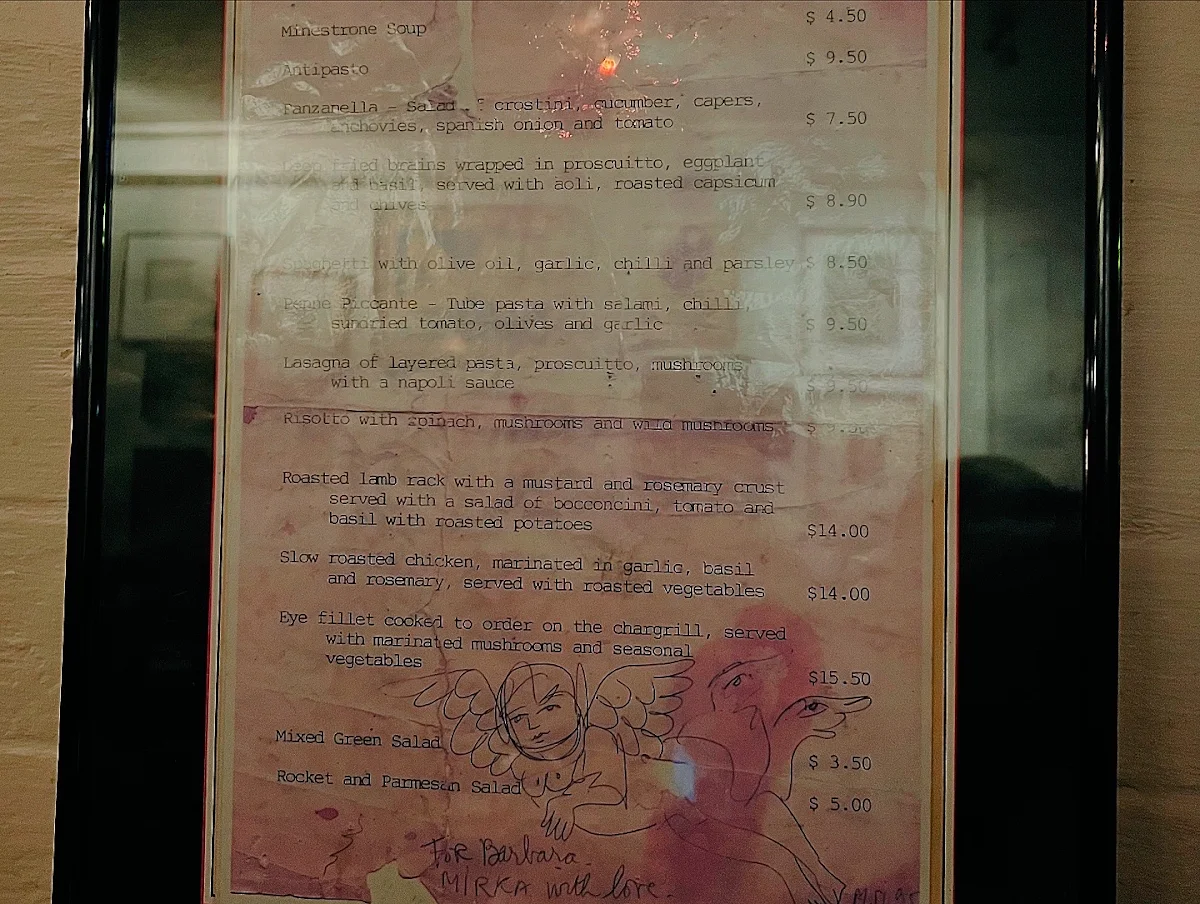 Minestrone Soup $ 4.50
Antipasto $ 9.50
Panzanella - Salad crostini, cucumber, capers,
anchovies, spanish onion and tomato $ 7.50
fried brains wrapped in proscuitto, eggplant
and basil, served with aoli, roasted capsicum
and chives $ 8.90
Spaghetti with olive oil, garlic, chilli and parsley $ 8.50
Penne Piccante - Tube pasta with salami, chilli,
sundried tomato, olives and garlic $ 9.50
Lasagna of layered pasta, proscuitto, mushrooms
with a napoli sauce $ 9.50
Risotto with spinach, mushrooms and wild mushrooms $
Roasted lamb rack with a mustard and rosemary crust
served with a salad of bocconcini, tomato and
basil with roasted potatoes $14.00
Slow roasted chicken, marinated in garlic, basil
and rosemary, served with roasted vegetables $14.00
Eye fillet cooked to order on the chargrill, served
with marinated mushrooms and seasonal
vegetables $15.50
Mixed Green Salad $ 3.50
Rocket and Parmesan Salad $ 5.00
For Barbara.
MIRKA with love.